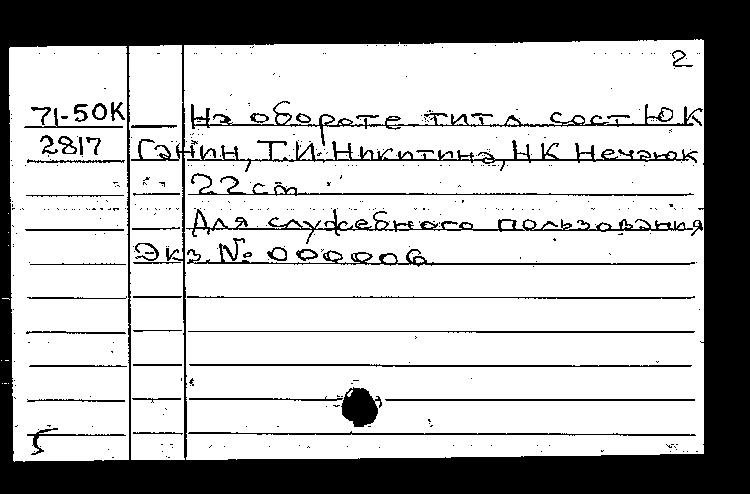 2
71-50К На обороте тит л сост Ю К
2817 Ганин, Т.И. Никитина, Н К Нечаюк
22 cm
Для служебного пользования
Экз. № 000006
5